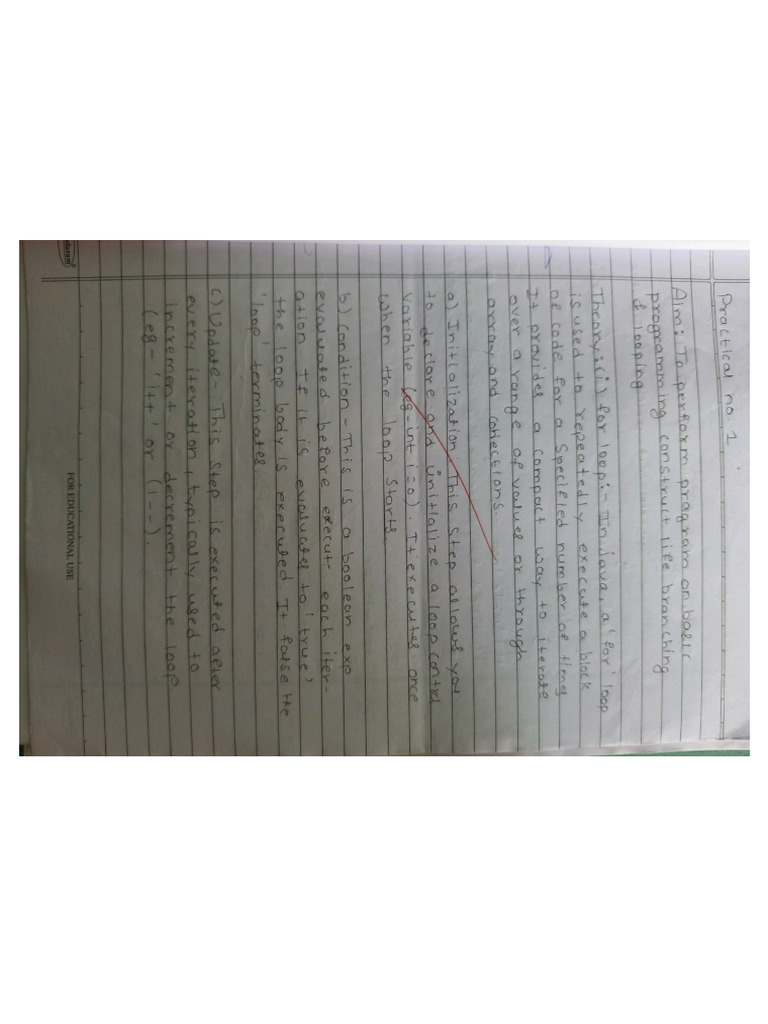 Practical no. 1
Aim: To perform program on basic
programming construct like branching
& looping
Theory:(i) for loop:- In java, a 'for' loop
is used to repeatedly execute a block
of code for a specified number of times
It provides a compact way to iterate
over a range of values or through
array and collections.
a) Initialization - This step allows you
to declare and initialize a loop control
variable (eg - int i=0). It executes once
when the loop starts
b) Condition - This is a boolean exp
evaluated before execut- each iter-
ation If it is evaluates to 'true'
the loop body is executed If false the
'loop' terminates.
c) Update - This step is executed after
every iteration, typically used to
increment or decrement the loop
(eg - 'i++' or (i--).
FOR EDUCATIONAL USE